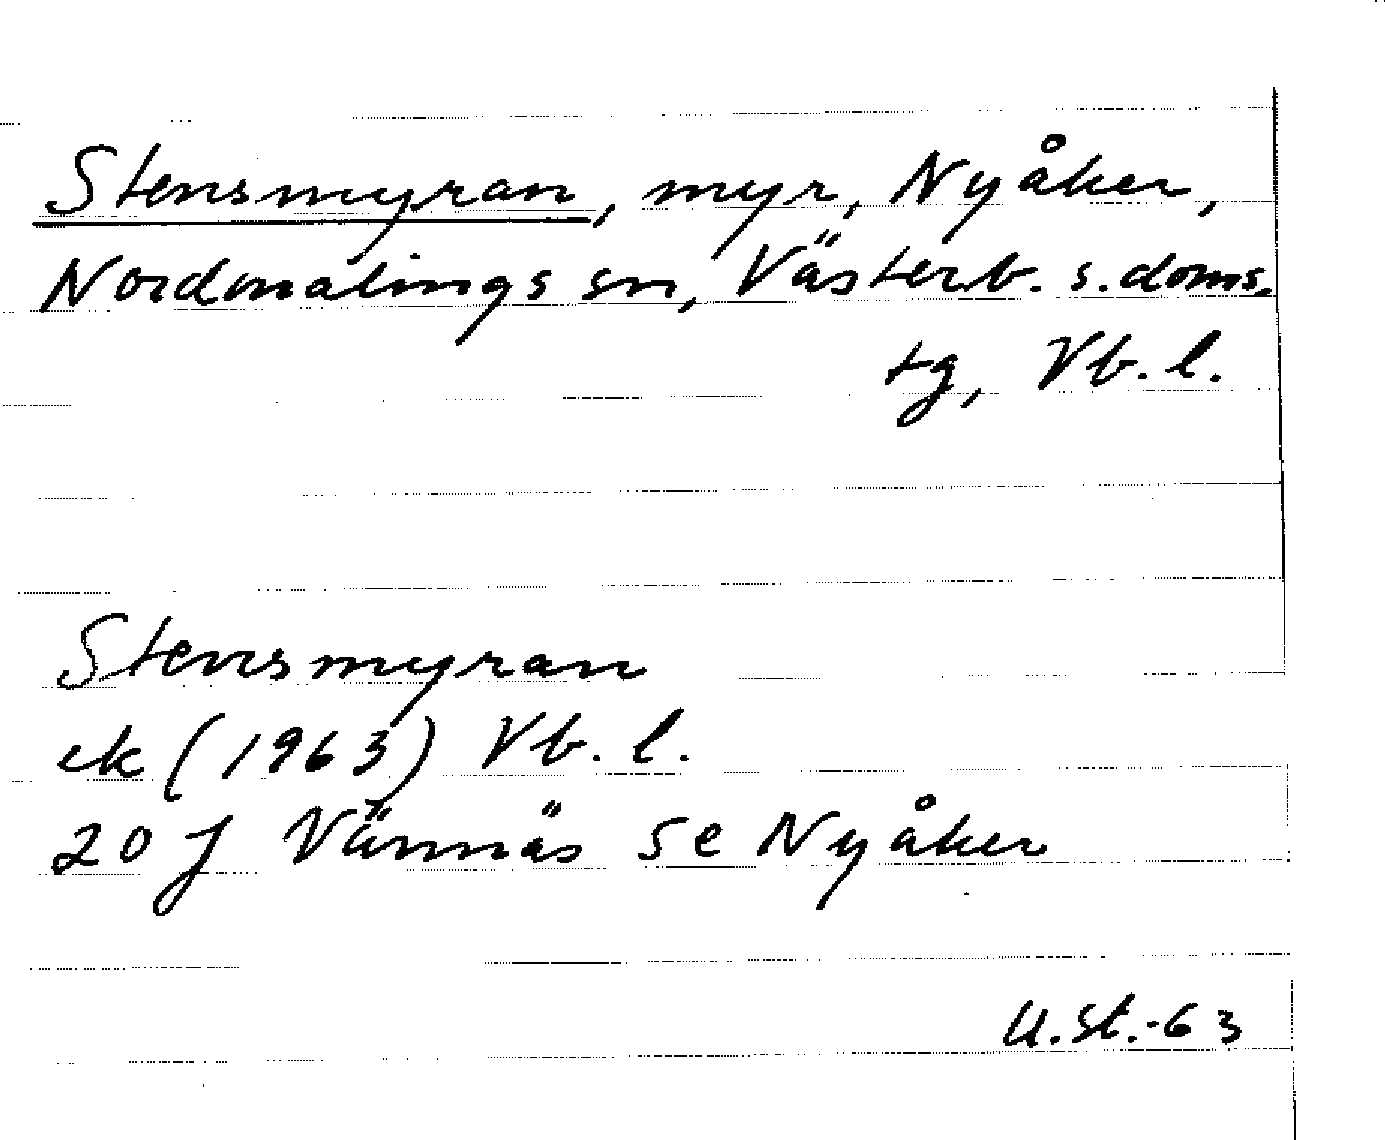 Stensmyran, myr, Nyåker,
Nordmalings sn, Västerb. s. doms.
tg, Vb. l.
Stensmyran
ek (1963) Vb. l.
20 J Vännäs SE Nyåker
U. St. -63